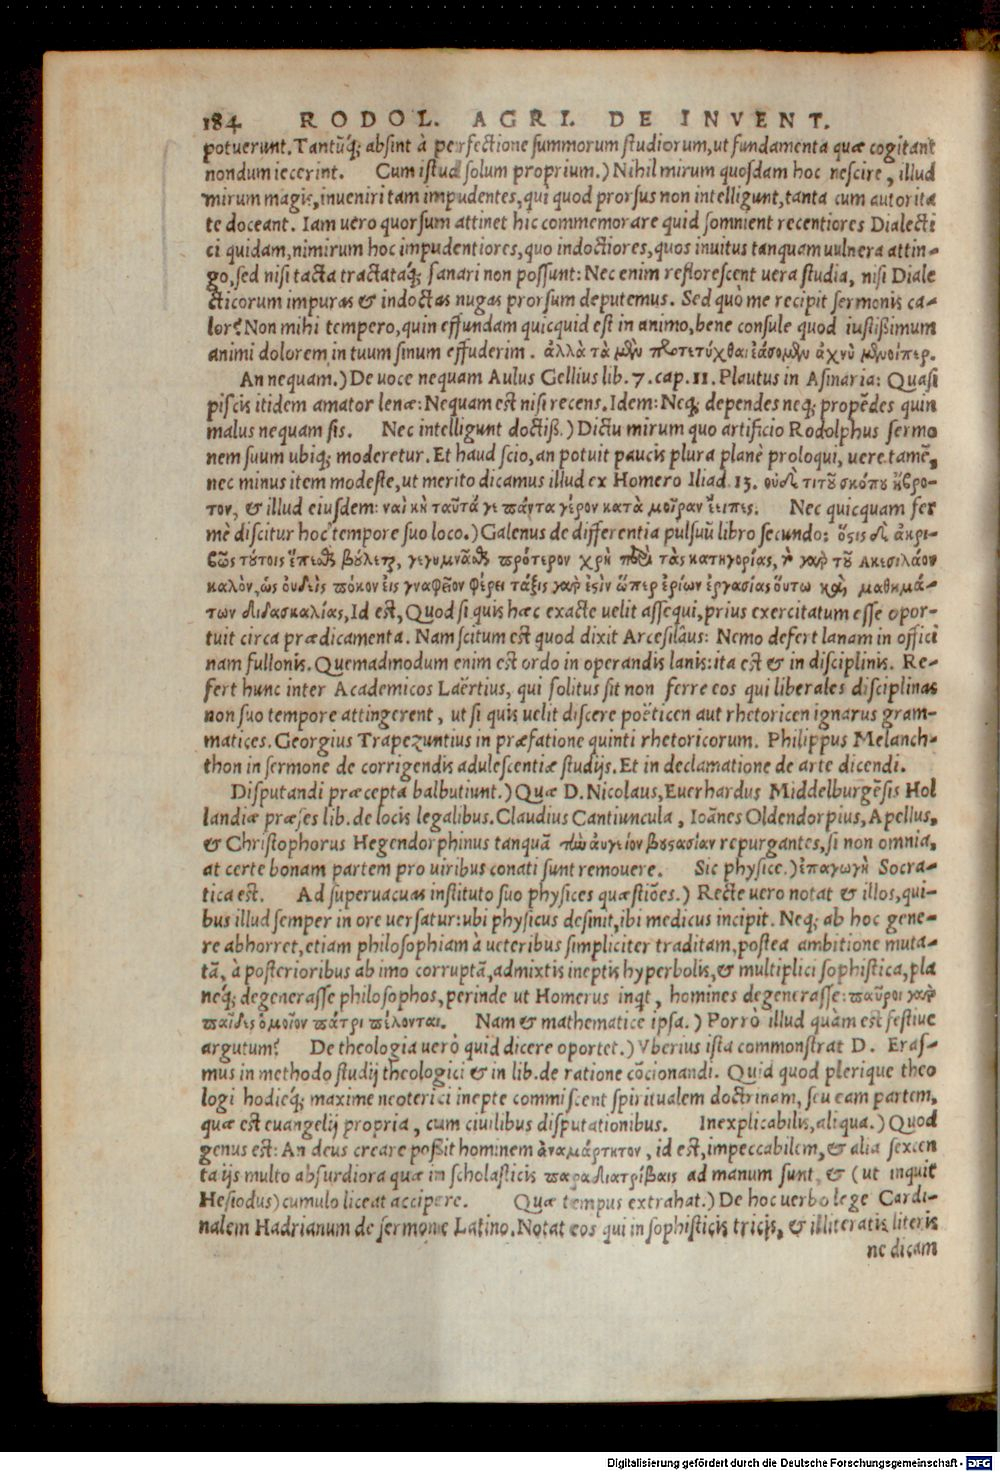 184 RODOL. AGRI. DE INVENT.
potuerunt. Tantũq́; absint à perfectione summorum studiorum, ut fundamenta quæ cogitant
nondum iecerint. Cum istud solum proprium.) Nihil mirum quosdam hoc nescire, illud
mirum magis, inveniri tam impudentes, qui quod prorsus non intelligunt, tanta cum autorita
te doceant. Iam uero quorsum attinet hic commemorare quid somnient recentiores Dialecti
ci quidam, nimirum hoc impudentiores, quo indoctiores, quos inuitus tanquam uulnera attin-
go, sed nisi tacta tractataq́; sanari non possunt: Nec enim reflorescent uera studia, nisi Diale
cticorum impuras & indoctas nugas prorsum deputemus. Sed quò me recipit sermonis ca-
lor? Non mihi tempero, quin effundam quicquid est in animo, bene consule quod iustißimum
animi dolorem in tuum sinum effuderim. ἀλλὰ τὰ μὲν προτετύχθαι ἐάσομεν ἀχνύμενοι περ.
An nequam.) De uoce nequam Aulus Gellius lib. 7. cap. 11. Plautus in Asinaria: Quasi
piscis itidem amator lenæ: Nequam est nisi recens. Idem: Neq; dependes neq; propẽdes quin
malus nequam sis. Nec intelligunt doctiß.) Dictu mirum quo artificio Rodolphus sermo
nem suum ubiq; moderetur. Et haud scio, an potuit paucis plura planè proloqui, uere tamẽ,
nec minus item modeste, ut merito dicamus illud ex Homero Iliad. 13. οὐδὲ τι τοῦ σκόπου ἤμβρο-
τον, & illud eiusdem: ναὶ κὴ ταῦτά γε πάντα γέρον κατὰ μοῖραν ἔειπες. Nec quicquam fer
mè discitur hoc tempore suo loco.) Galenus de differentia pulsuũ libro secundo: ὅστις δὲ ἀκρι-
βῶς τούτοις ἕπεσθαι βούλεται, γεγυμνᾶσθαι πρότερον χρὴ περὶ τὰς κατηγορίας, ἦ γὰρ τοῦ ακεσιλάου
καλὸν, ὡς οὐδεὶς πόκον εἰς γναφεῖον φέρει τάξις γὰρ ἐστὶν ὥσπερ ἐρίων ἐργασίας οὕτω καὶ μαθημά-
των διδασκαλίας, Id est, Quod si quis hæc exacte uelit assequi, prius exercitatum esse opor-
tuit circa prædicamenta. Nam scitum est quod dixit Arcesilaus: Nemo defert lanam in offici
nam fullonis. Quemadmodum enim est ordo in operandis lanis: ita est & in disciplinis. Re-
fert hunc inter Academicos Laërtius, qui solitus sit non ferre eos qui liberales disciplinas
non suo tempore attingerent, ut si quis uelit discere poëticen aut rhetoricen ignarus gram-
matices. Georgius Trapezuntius in præfatione quinti rhetoricorum. Philippus Melanch-
thon in sermone de corrigendis adulescentiæ studijs. Et in declamatione de arte dicendi.
Disputandi præcepta balbutiunt.) Quæ D. Nicolaus, Euerhardus Middelburgẽsis Hol
landiæ præses lib. de locis legalibus. Claudius Cantiuncula, Ioãnes Oldendorpius, Apellus,
& Christophorus Hegendorphinus tanquã τὴν ἀυγείου βουστασίαν repurgantes, si non omnia,
at certe bonam partem pro uiribus conati sunt remouere. Sic physice.) ἐπαγωγὴ Socra-
tica est. Ad superuacuas instituto suo physices quæstiões.) Recte uero notat & illos, qui-
bus illud semper in ore uersatur: ubi physicus desinit, ibi medicus incipit. Neq; ab hoc gene-
re abhorret, etiam philosophiam à ueteribus simpliciter traditam, postea ambitione muta-
tã, à posterioribus ab imo corruptã, admixtis ineptis hyperbolis, & multiplici sophistica, pla
neq́; degenerasse philosophos, perinde ut Homerus inqt, homines degenerasse: παῦροι γὰρ
παῖδες ὁμοῖον πάτρι πέλονται. Nam & mathematice ipsa.) Porrò illud quàm est festiue
argutum? De theologia uerò quid dicere oportet.) Vberius ista commonstrat D. Eras-
mus in methodo studij theologici & in lib. de ratione cõcionandi. Quid quod plerique theo
logi hodieq́; maxime neoterici inepte commiscent spiritualem doctrinam, seu eam partem,
quæ est euangelij propria, cum ciuilibus disputationibus. Inexplicabilis, aliqua.) Quod
genus est: An deus creare poßit hominem ἀναμάρτητον, id est, impeccabilem, & alia sexcen
ta ijs multo absurdiora quæ in scholasticis παραδιατρίβαις ad manum sunt, & (ut inquit
Hesiodus) cumulo liceat accipere. Quæ tempus extrahat.) De hoc uerbo lege Cardi-
nalem Hadrianum de sermone Latino. Notat eos qui in sophisticis tricis, & illiteratis literis
ne dicam
Digitalisierung gefördert durch die Deutsche Forschungsgemeinschaft - DFG